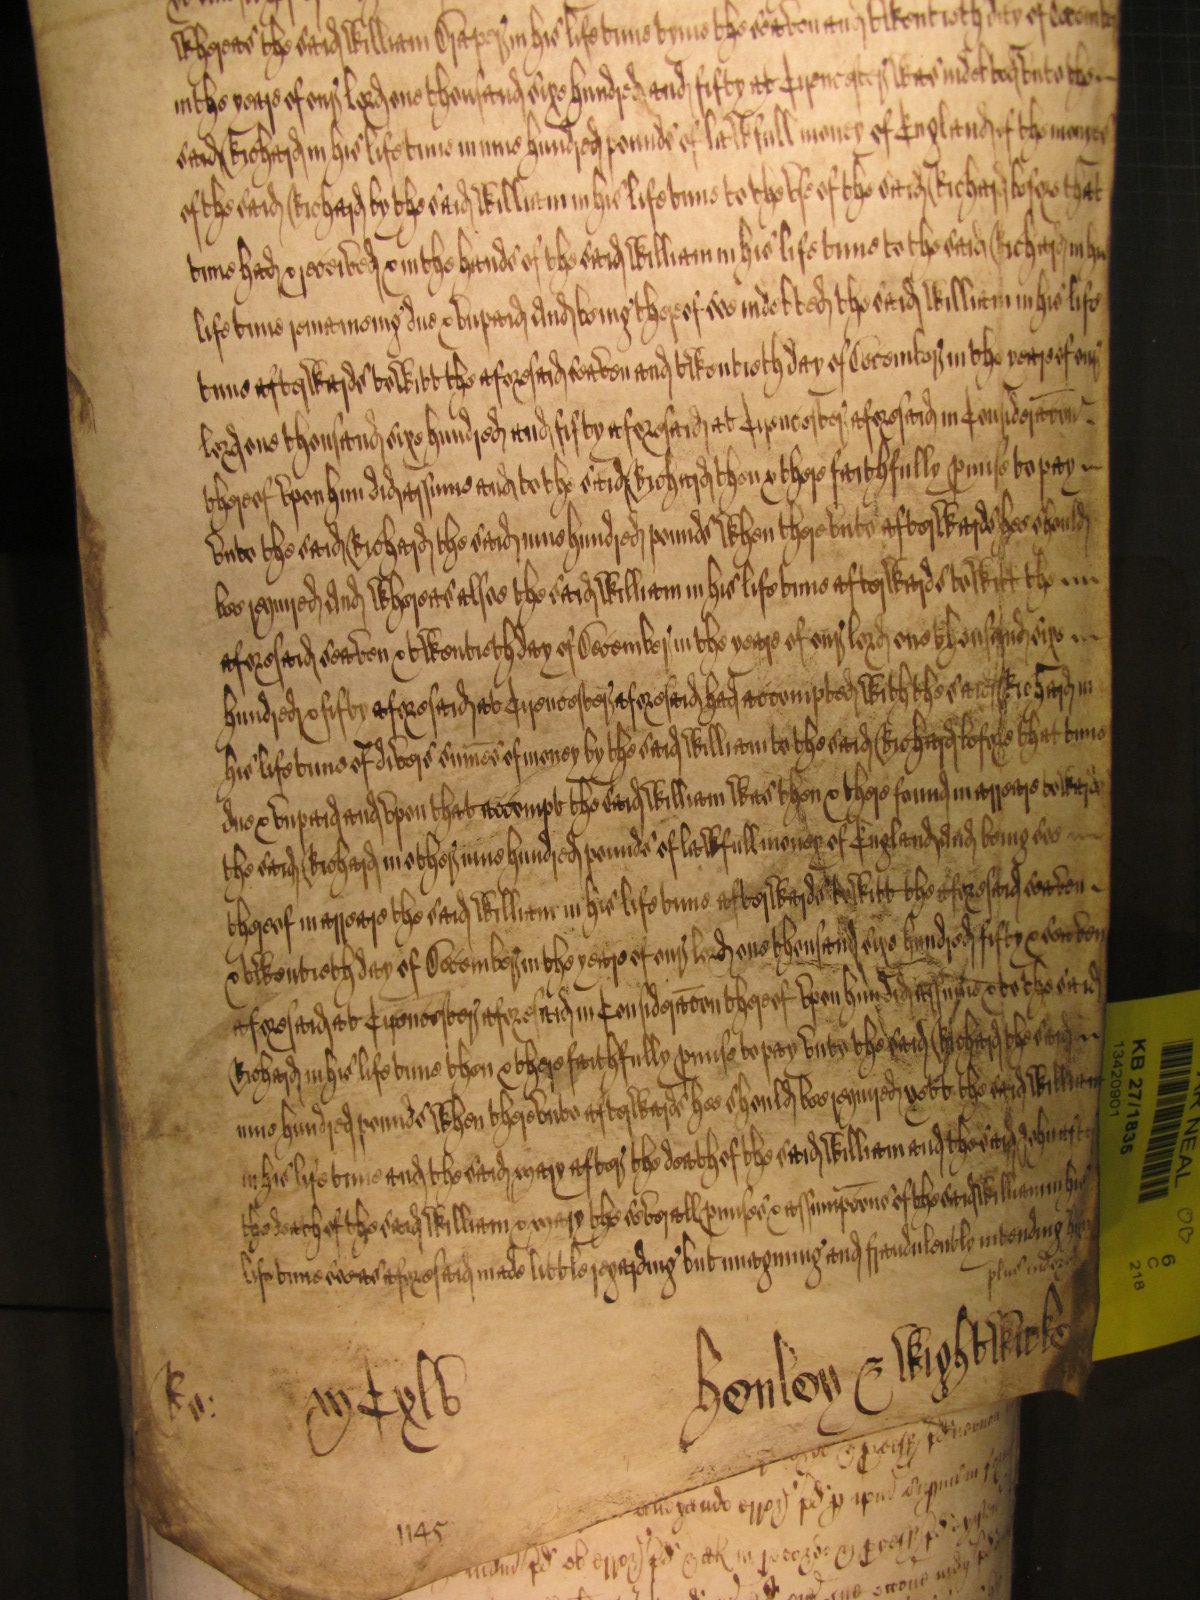 Whereas the said William Draper in his life time tyme the seaven and twentieth day of December
in the yeare of our lord one thousand sixe hundred and fifty at Cirencester was indebted unto the
said Richard in his life time in nine hundred pounds of lawfull money of England of the money
of the said Richard by the said William in his life time to the use of the said Richard before that
time had & received & in the hands of the said William in his life time to the said Richard in his
life time remaineing due & unpaid And being thereof soe indebted the said William in his life
time afterwards to witt the aforesaid seaven and twentieth day of December in the yeare of our
lord one thousand sixe hundred and fifty aforesaid at Cirencester aforesaid in Consideracon
thereof upon him did assume and to the said Richard then & there faithfully pmise to pay
unto the said Richard the said nine hundred pounds when thereunto afterwards hee should
bee required And Whereas alsoe the said William in his life time afterwards to witt the
aforesaid seaven & twentieth day of December in the yeare of our lord one thousand sixe
hundred & fifty aforesaid at Cirencester aforesaid had accompted with the said Richard in
his life time of divers summes of money by the said William to the said Richard before that time
due & unpaid and upon that accompt the said William was then & there found in arreare towards
the said Richard in other nine hundred pounds of lawfull money of England And being soe
thereof in arreare the said William in his life time afterwards to witt the aforesaid seaven
& twentieth day of December in the yeare of our lord one thousand sixe hundred fifty & seaven
aforesaid at Cirencester aforesaid in Consideracon thereof upon him did assume & to the said
Richard in his life time then & there faithfully pmise to pay unto the said Richard the said
nine hundred pounds when thereunto afterwards hee should bee required yett the said William
in his life time and the said Mary after the death of the said William and the said John after
the death of the said William & Mary the severall pmises & assumpcons of the said William in his
life time soe as aforesaid made little regarding but imagining and fraudulently intending him
plus inde
Ro: m Cxlb Henley & Wightwicke
1145
KB 27/1836
13420901
NEAL
6
C
218